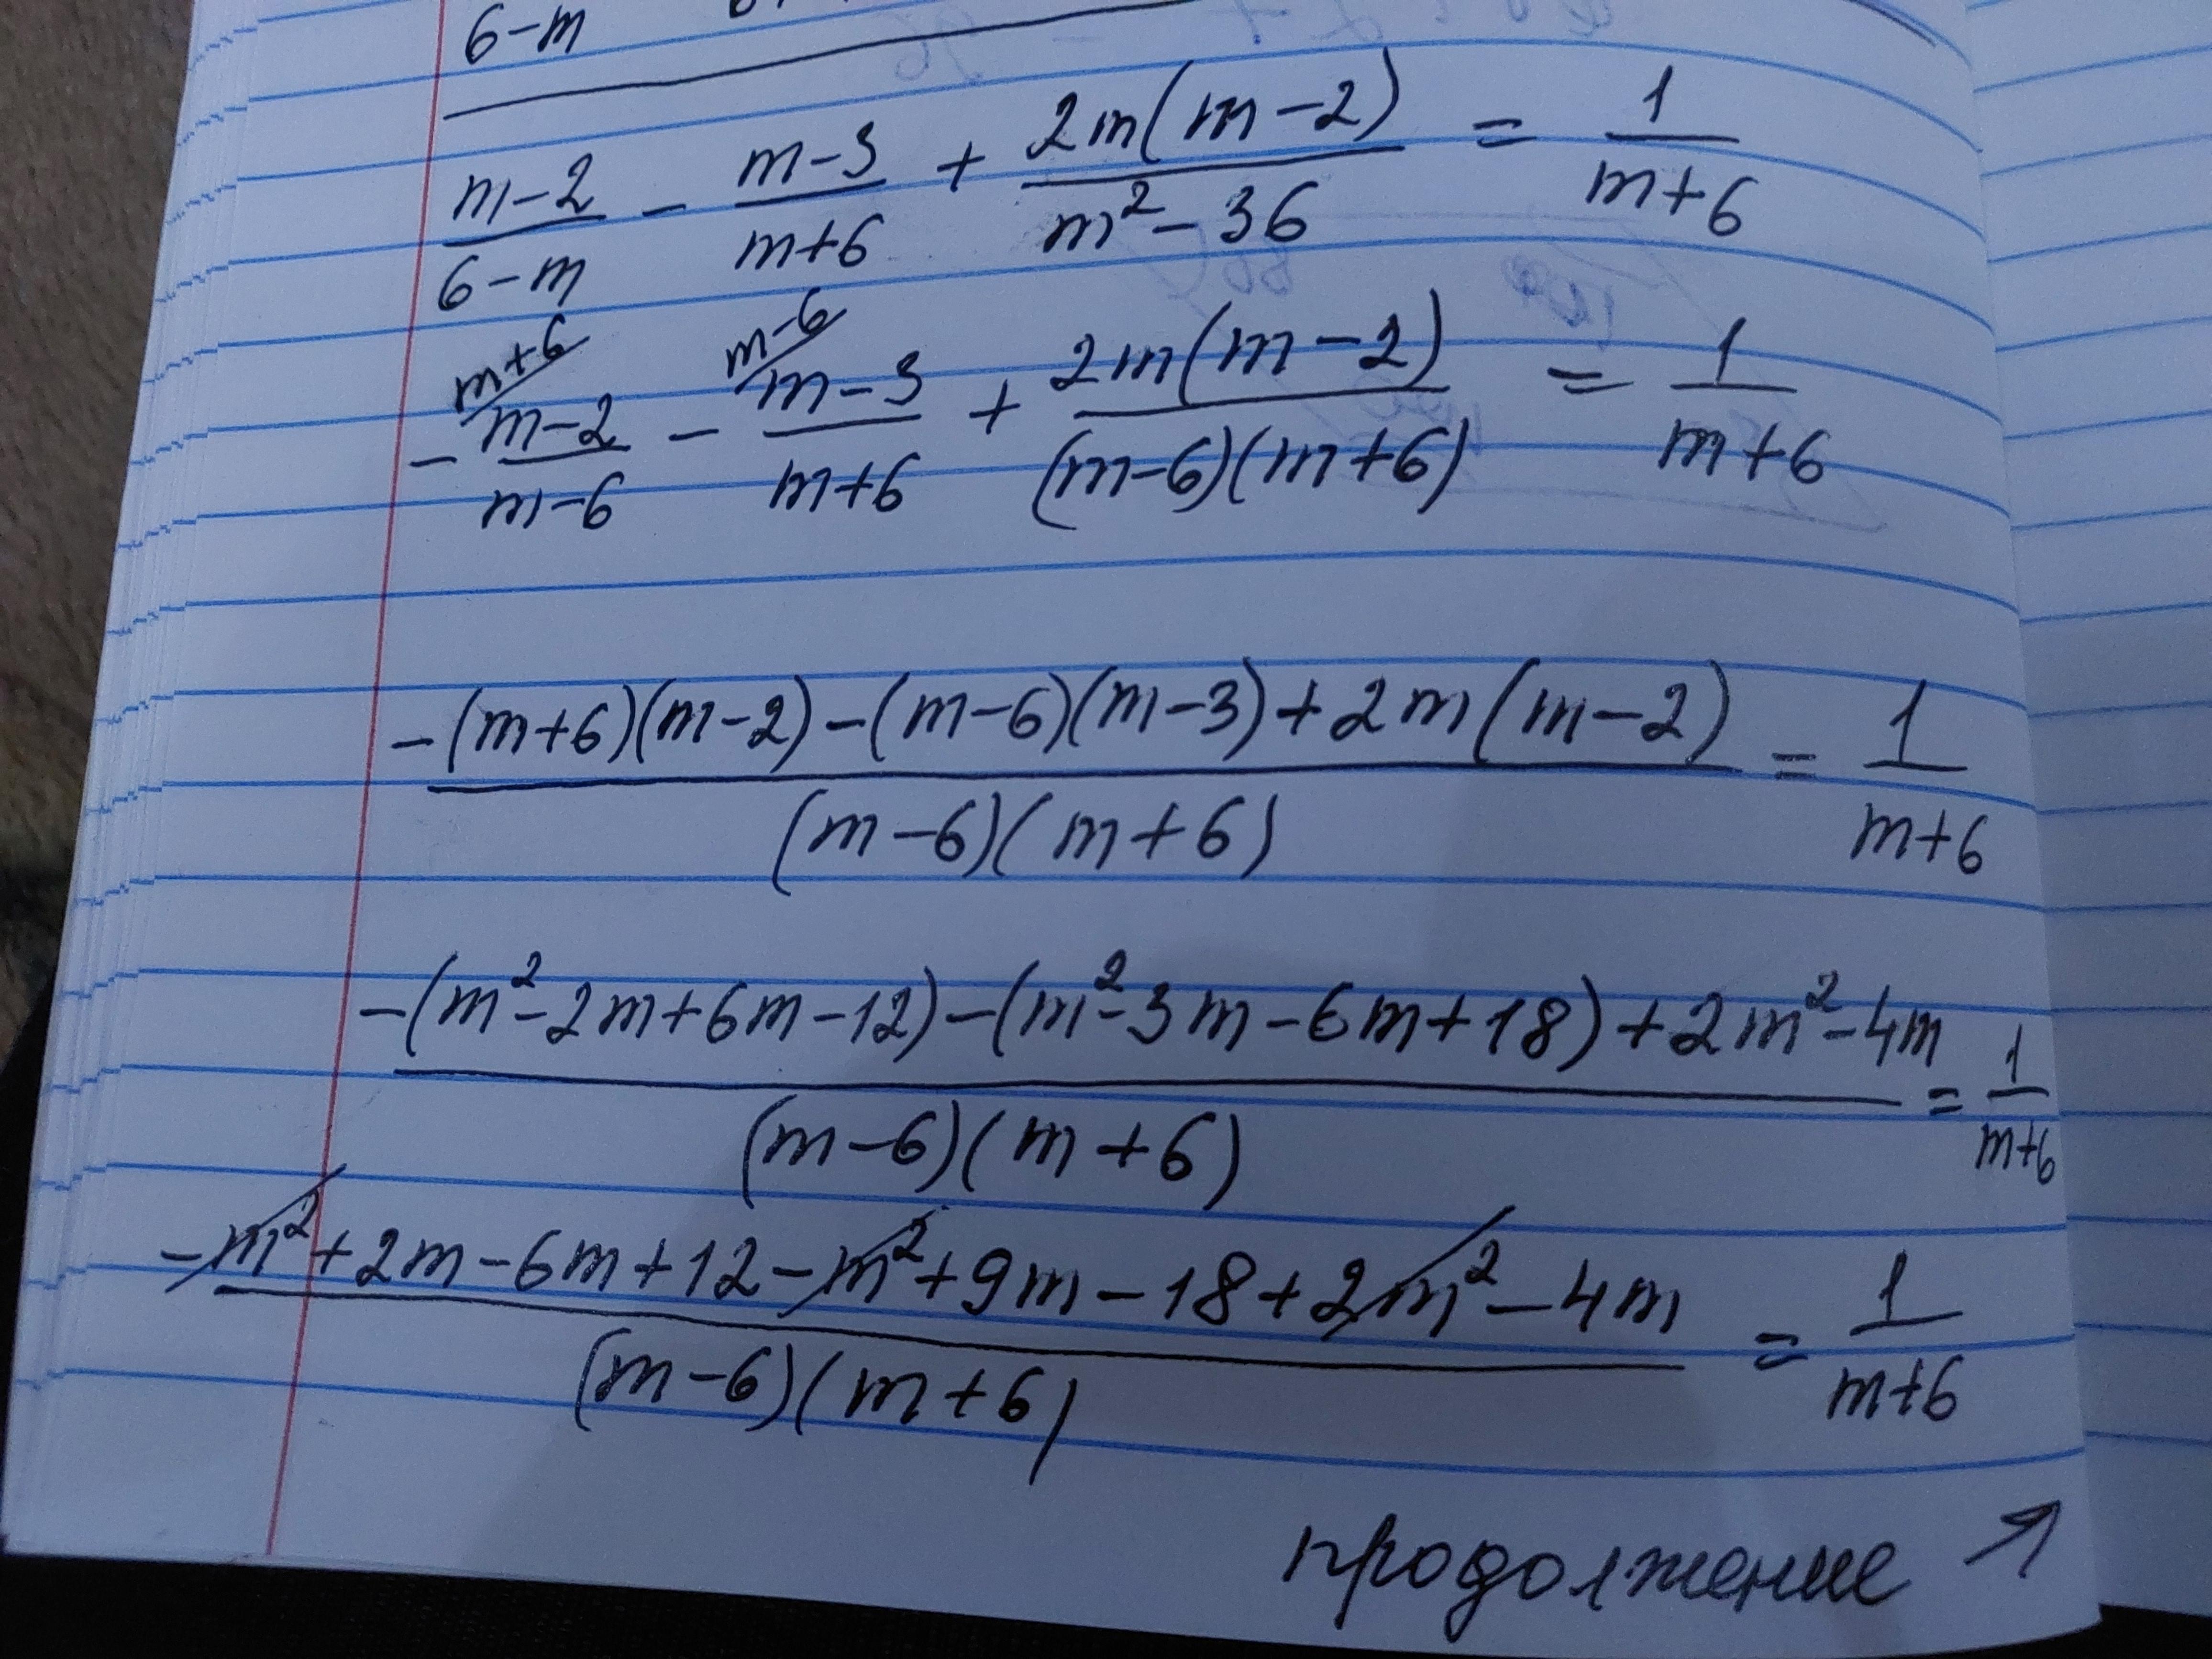 6-m
(m-2)/(6-m) - (m-3)/(m+6) + 2m(m-2)/(m²-36) = 1/(m+6)
m+6 m-6
-(m-2)/(m-6) - (m-3)/(m+6) + 2m(m-2)/((m-6)(m+6)) = 1/(m+6)
(-(m+6)(m-2)-(m-6)(m-3)+2m(m-2))/((m-6)(m+6)) = 1/(m+6)
(-(m²-2m+6m-12)-(m²-3m-6m+18)+2m²-4m)/((m-6)(m+6)) = 1/(m+6)
(-m²+2m-6m+12-m²+9m-18+2m²-4m)/((m-6)(m+6)) = 1/(m+6)
продолжение ↗